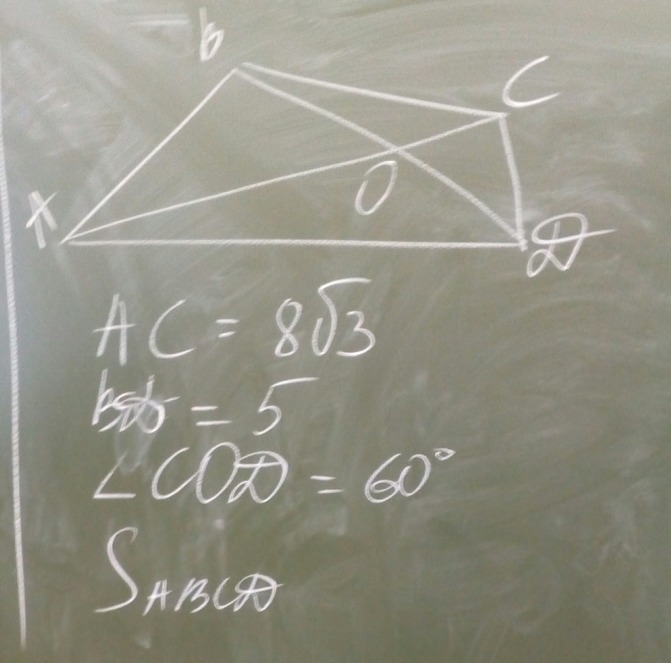 b
C
A
O
D
AC = 8√3
= 5
∠COD = 60°
S ABCD